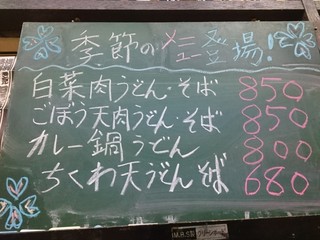 季節のメニュー登場!
白菜肉うどん・そば 850
ごぼう天肉うどん・そば 850
カレー鍋うどん 800
ちくわ天うどん そば 680